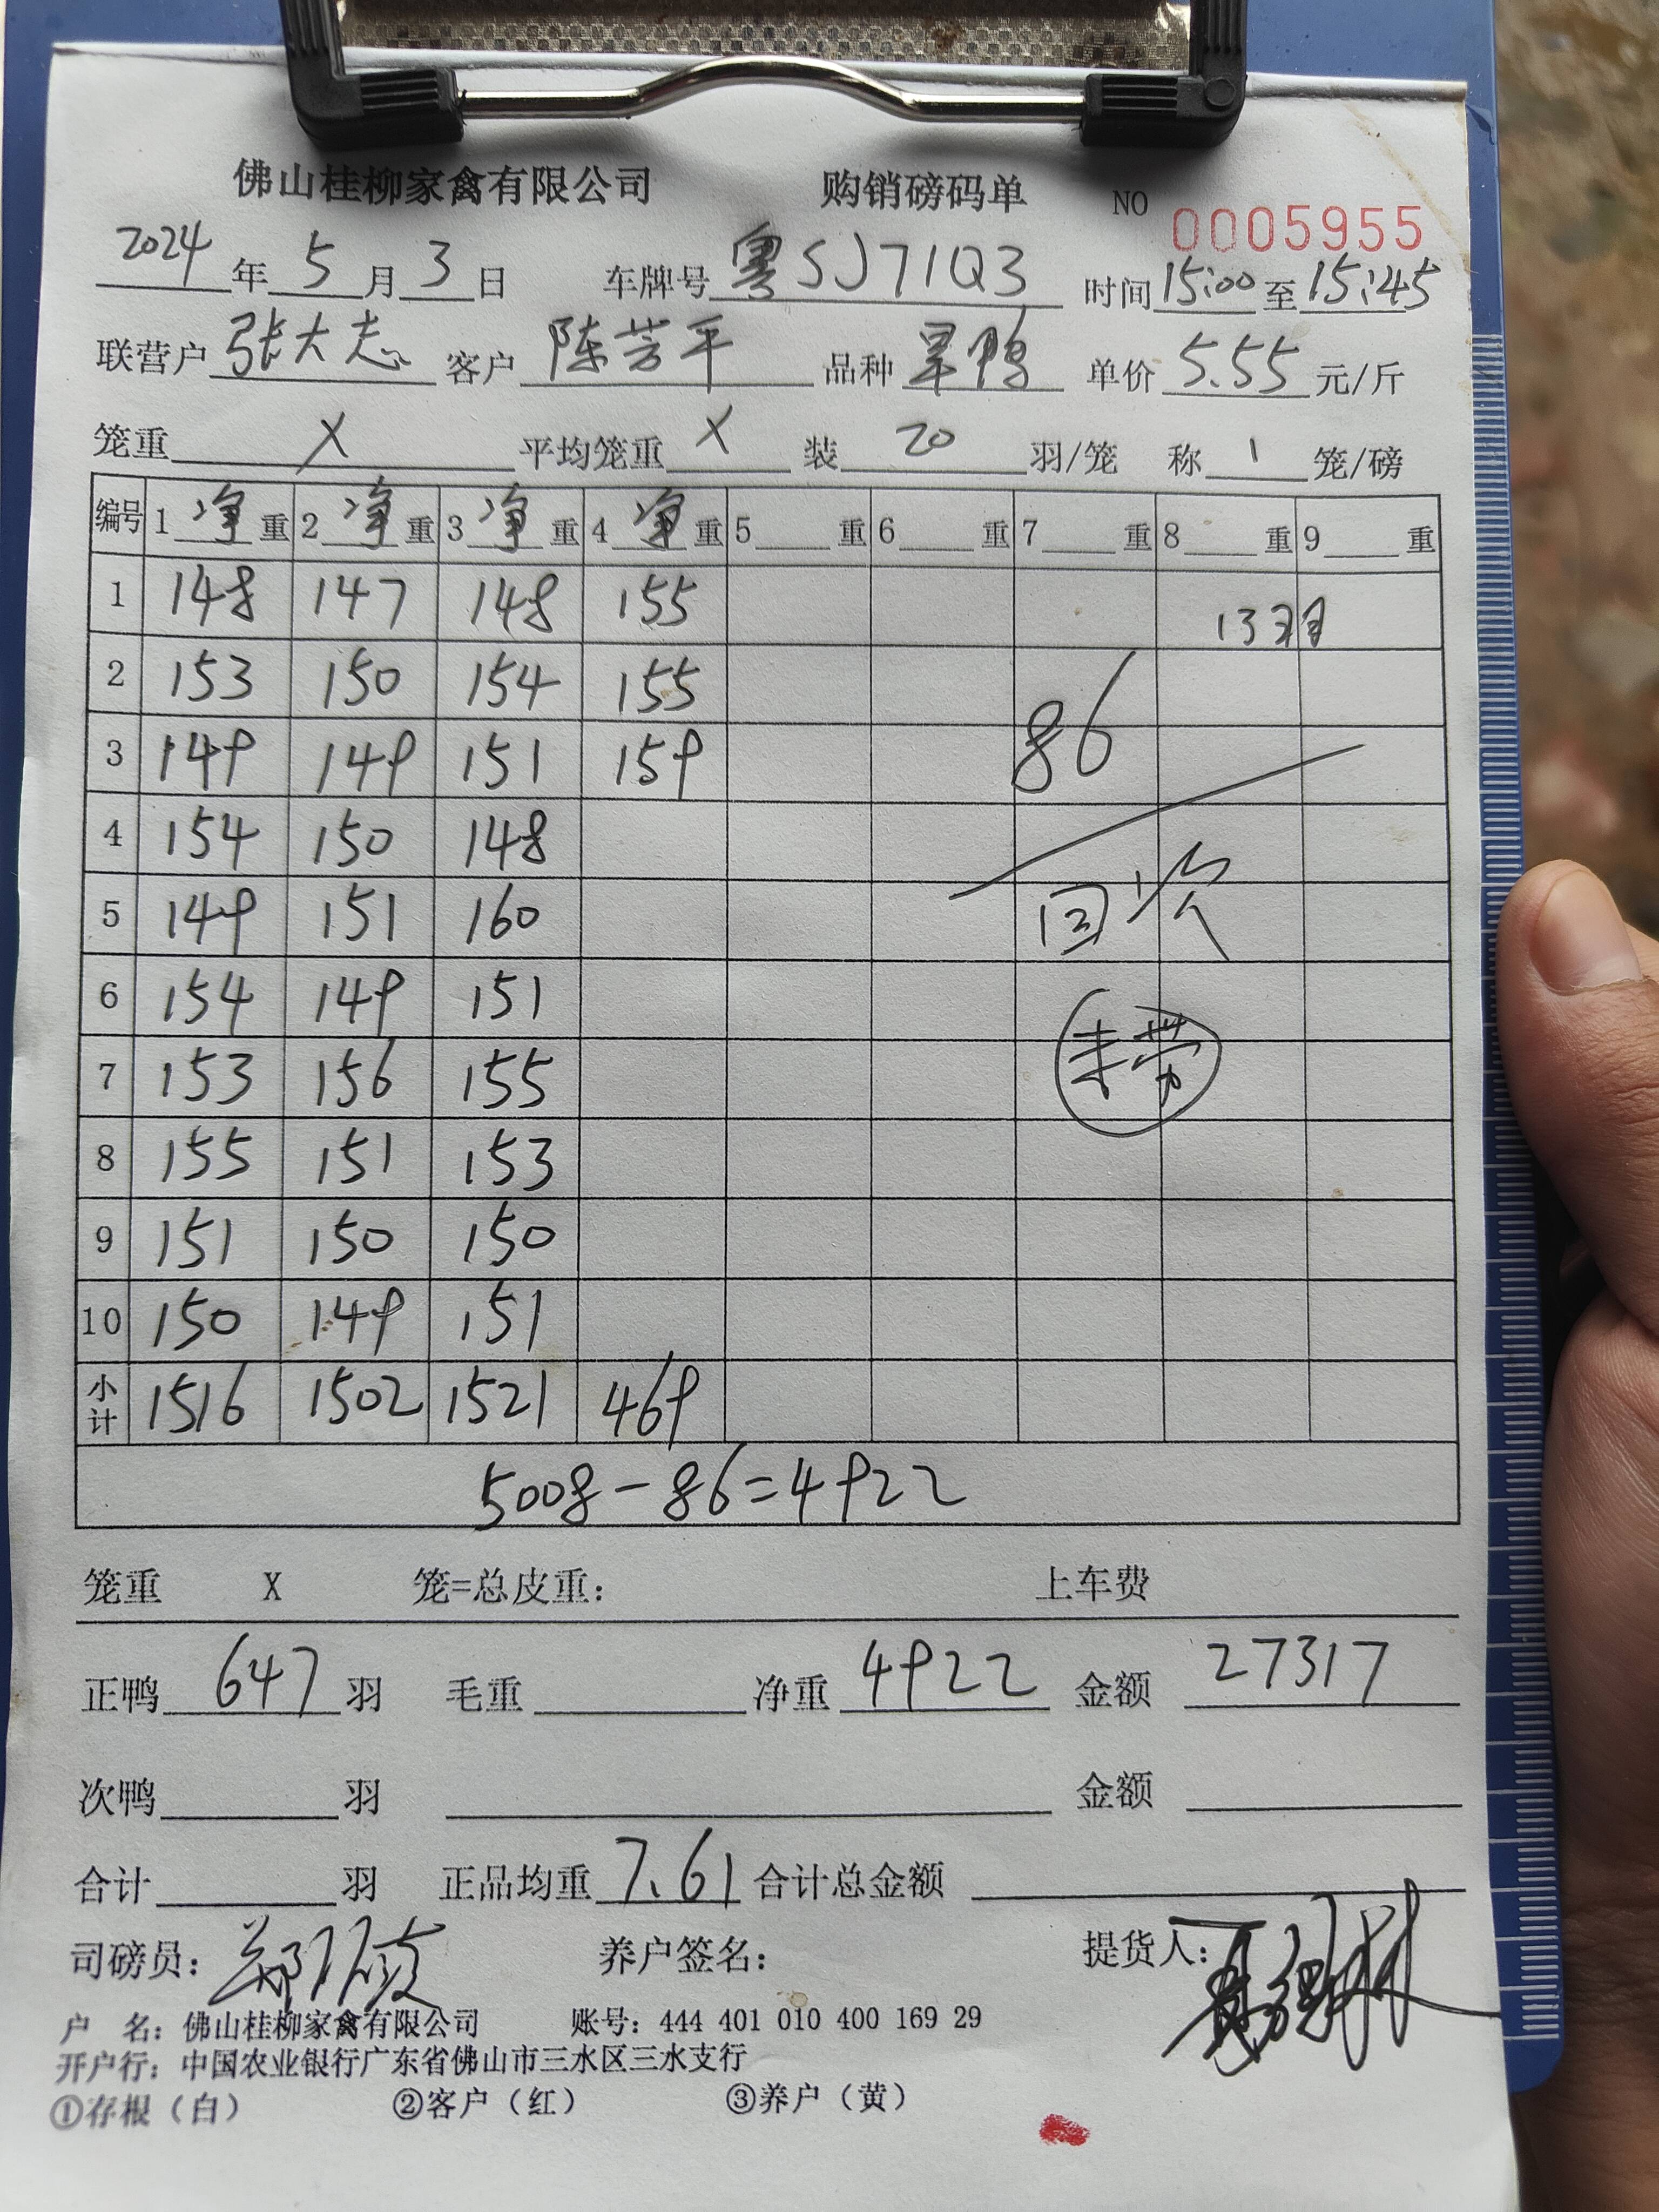 佛山桂柳家禽有限公司 购销磅码单 NO 0005955
2024年5月3日 车牌号粤SJ71Q3 时间15:00至15:45
联营户张大志 客户陈芳平 品种旱鸭 单价5.55元/斤
笼重X 平均笼重X 装20羽/笼 称1笼/磅
编号 1净重 2净重 3净重 4净重 5重 6重 7重 8重 9重
1 148 147 148 155 13羽
2 153 150 154 155
3 149 149 151 159 86
4 154 150 148
5 149 151 160 回次
6 154 149 151
7 153 156 155
8 155 151 153
9 151 150 150
10 150 149 151
小计 1516 1502 1521 469
5008-86=4922
笼重 X 笼=总皮重: 上车费
正鸭647羽 毛重 净重4922 金额27317
次鸭 羽 金额
合计 羽 正品均重7.61 合计总金额
司磅员: 养户签名: 提货人:
户 名: 佛山桂柳家禽有限公司 账号: 444 401 010 400 169 29
开户行: 中国农业银行广东省佛山市三水区三水支行
①存根(白) ②客户(红) ③养户(黄)